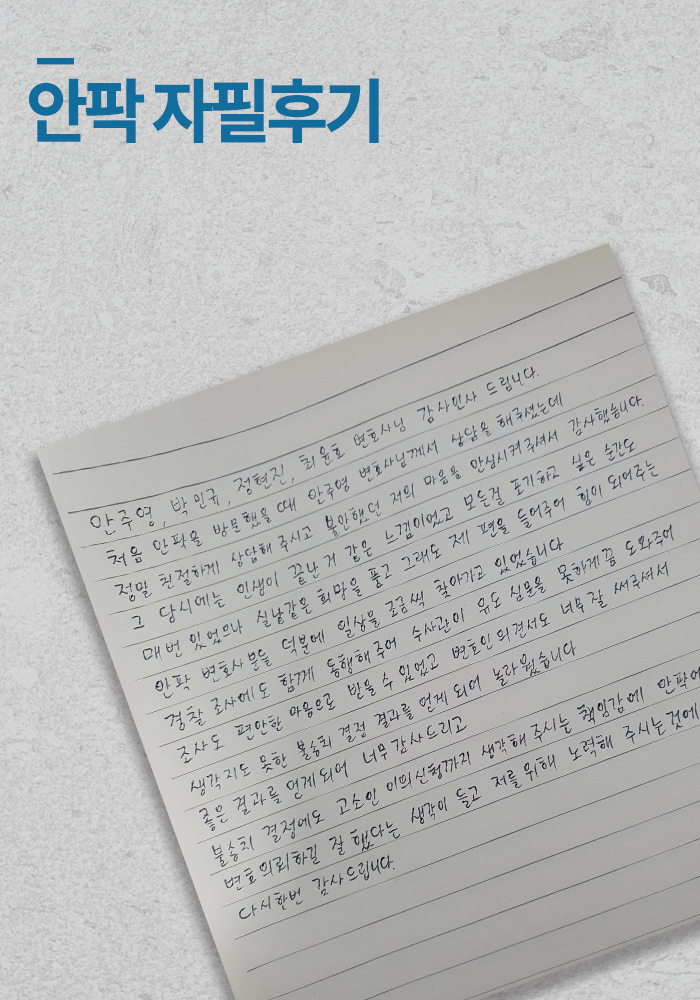 안팍 자필후기
안주영, 박민규, 정현진, 최윤호 변호사님 감사인사 드립니다.
처음 안팍을 방문했을 때 안주영 변호사님께서 상담을 해주셨는데
정말 친절하게 상담해 주시고 불안했던 저의 마음을 안심시켜 주셔서 감사했습니다.
그 당시에는 인생이 끝난거 같은 느낌이었고 모든걸 포기하고 싶은 순간도
매번 있었으나 실낱같은 희망을 품고 그래도 제 편을 들어주어 힘이 되어주는
안팍 변호사분들 덕분에 일상을 조금씩 찾아가고 있었습니다
경찰 조사에도 함께 동행해주어 수사관이 유도 심문을 못하게끔 도와주어
조사도 편안한 마음으로 받을 수 있었고 변호인의견서도 너무 잘 써주셔서
생각지도 못한 불송치 결정 결과를 얻게 되어 놀라웠습니다
좋은 결과를 얻게되어 너무 감사드리고
불송치 결정에도 고소인 이의신청까지 생각해 주시는 책임감에 안팍에
변호의뢰하길 잘했다는 생각이 들고 저를 위해 노력해 주시는것에
다시한번 감사드립니다.